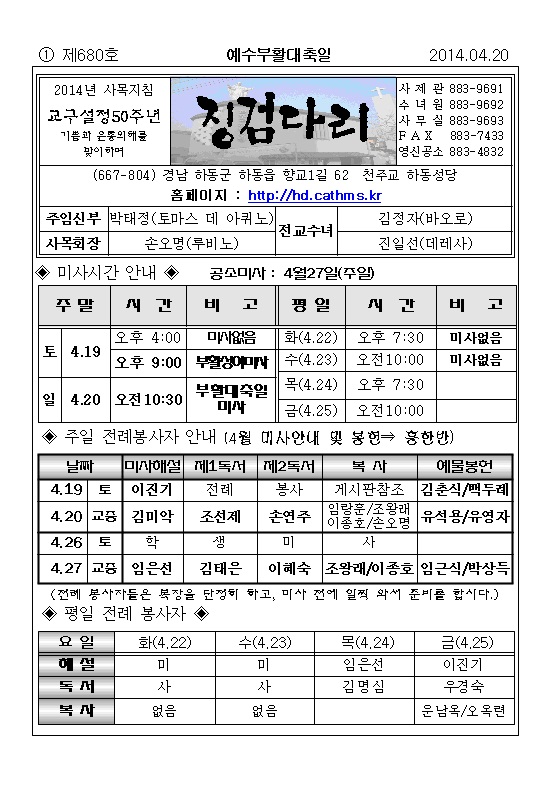 ① 제680호 예수부활대축일 2014.04.20
2014년 사목지침
교구설정50주년
기쁨과 은총의해를
맞이하며
징검다리
사 제 관 883-9691
수 녀 원 883-9692
사 무 실 883-9693
F A X 883-7433
영신공소 883-4832
(667-804) 경남 하동군 하동읍 향교1길 62 천주교 하동성당
홈페이지 : http://hd.cathms.kr
주임신부 박태정(토마스 데 아퀴노) 전교수녀 김정자(바오로)
사목회장 손오명(루비노) 진일선(데레사)
◈ 미사시간 안내 ◈ 공소미사 : 4월27일(주일)
주 말 시 간 비 고 평 일 시 간 비 고
토 4.19 오후 4:00 미사없음 화(4.22) 오후 7:30 미사없음
오후 9:00 부활성야미사 수(4.23) 오전10:00 미사없음
일 4.20 오전10:30 부활대축일 미사 목(4.24) 오후 7:30
금(4.25) 오전10:00
◈ 주일 전례봉사자 안내 (4월 미사안내 및 봉헌⇒ 횡천반)
날짜 미사해설 제1독서 제2독서 복 사 예물봉헌
4.19 토 이진기 전례 봉사 게시판참조 김춘식/백두례
4.20 교중 김미악 조선제 손연주 임랑훈/조왕래 이종호/손오명 유석용/유영자
4.26 토 학 생 미 사
4.27 교중 임은선 김태은 이혜숙 조왕래/이종호 임근식/박상득
(전례 봉사자들은 복장을 단정히 하고, 미사 전에 일찍 와서 준비를 합시다.)
◈ 평일 전례 봉사자 ◈
요 일 화(4.22) 수(4.23) 목(4.24) 금(4.25)
해 설 미 미 임은선 이진기
독 서 사 사 김명심 우경숙
복 사 없음 없음 운남옥/오옥련